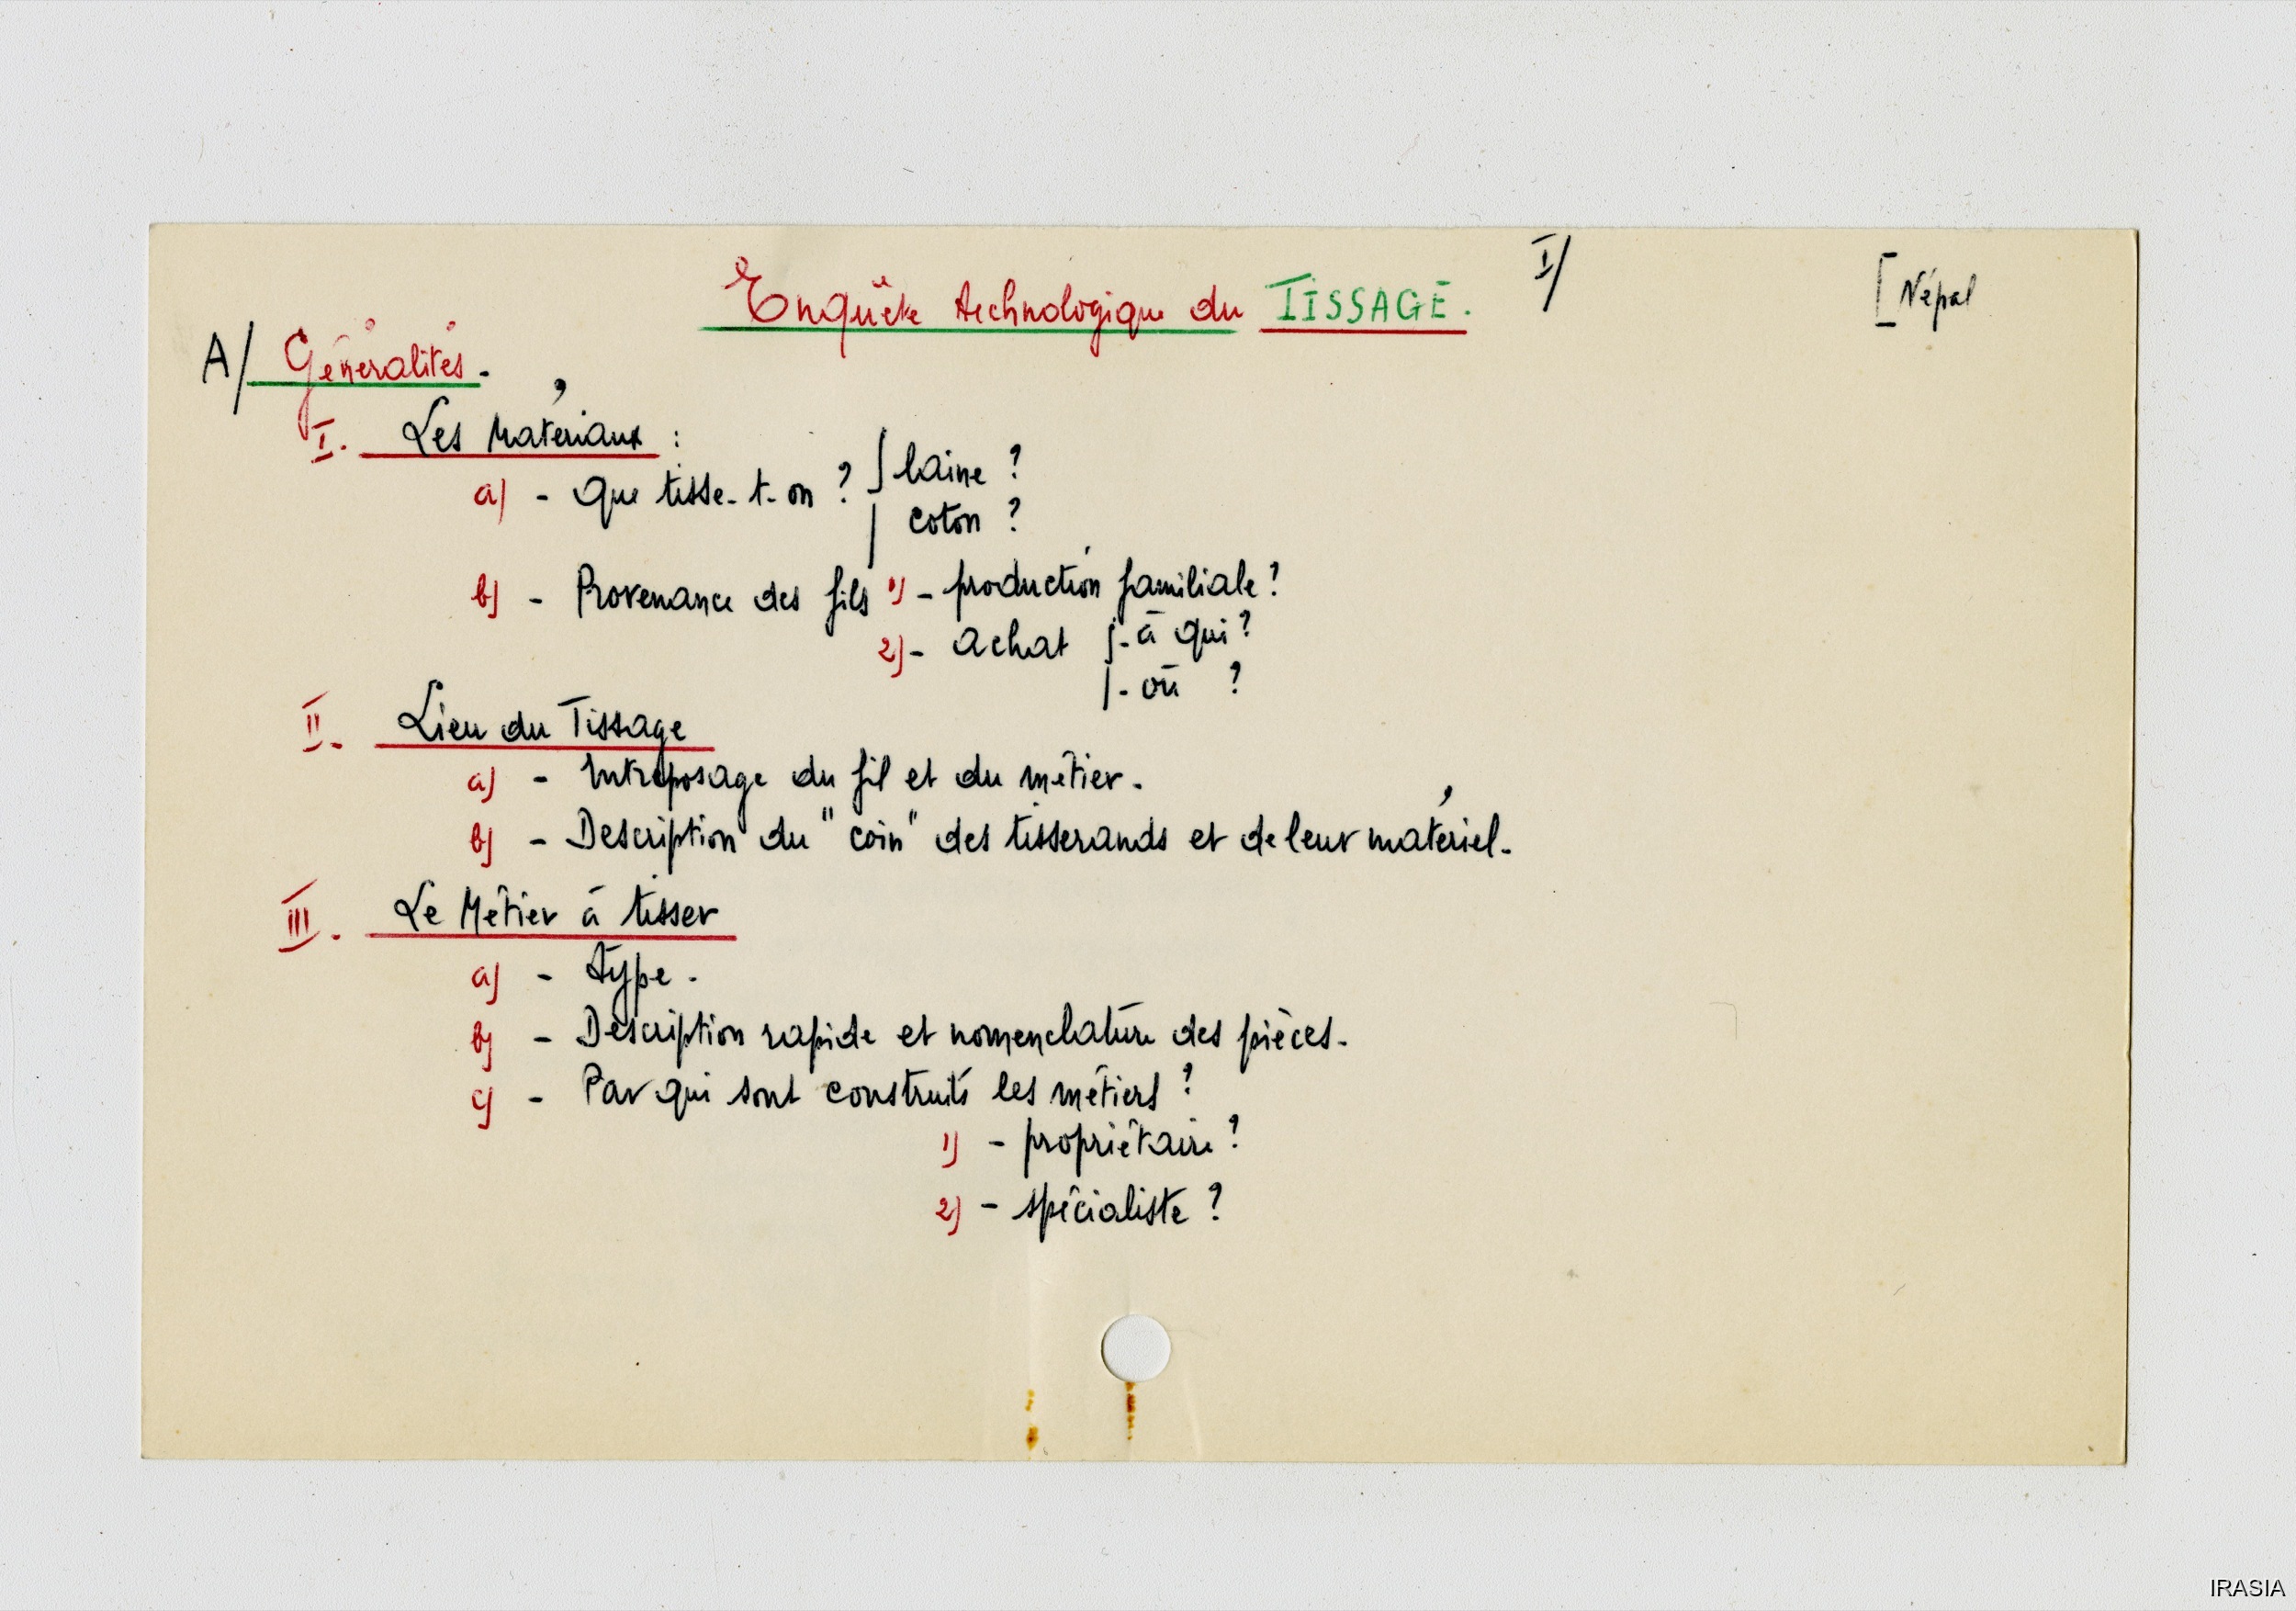 Enquête technologique du TISSAGE. I/ [Népal
A/ Généralités.
I. Les Matériaux :
a) - Que tisse-t-on ? laine ?
coton ?
b) - Provenance des fils 1) - production familiale ?
2) - achat - à qui ?
- où ?
II. Lieu du Tissage
a) - Entreposage du fil et du métier.
b) - Description du "coin" des tisserands et de leur matériel.
III. Le Métier à tisser
a) - type.
b) - Description rapide et nomenclature des pièces.
c) - Par qui sont construits les métiers ?
1) - propriétaire ?
2) - spécialiste ?
IRASIA